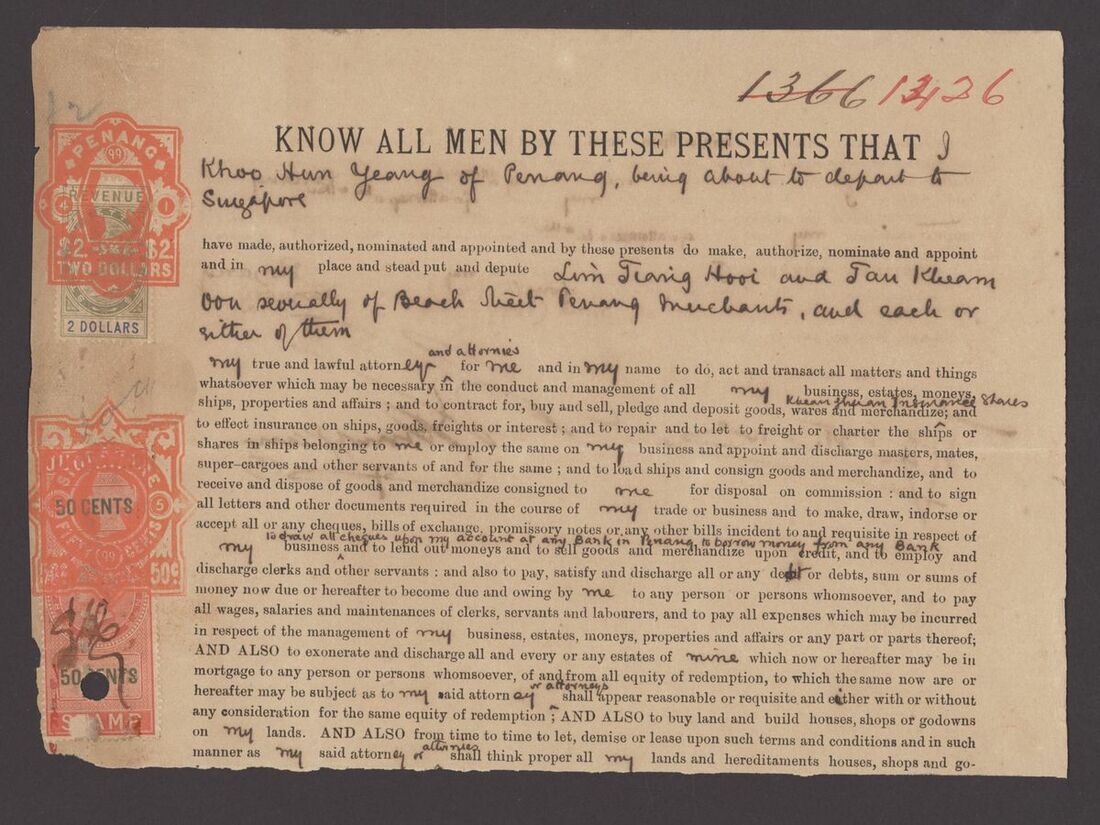 1366 13426
KNOW ALL MEN BY THESE PRESENTS THAT I
Khoo Hun Yeang of Penang, being about to depart to
Singapore
have made, authorized, nominated and appointed and by these presents do make, authorize, nominate and appoint
and in my place and stead put and depute Lim Tiang Hooi and Tan Kheam
Oon severally of Beach Street Penang Merchants, and each or
either of them
and attornies
my true and lawful attorney for me and in my name to do, act and transact all matters and things
whatsoever which may be necessary in the conduct and management of all my business, estates, moneys,
Khean Guan Insurance Shares
ships, properties and affairs ; and to contract for, buy and sell, pledge and deposit goods, wares and merchandize; and
to effect insurance on ships, goods, freights or interest ; and to repair and to let to freight or charter the ships or
shares in ships belonging to me or employ the same on my business and appoint and discharge masters, mates,
super-cargoes and other servants of and for the same ; and to load ships and consign goods and merchandize, and to
receive and dispose of goods and merchandize consigned to me for disposal on commission : and to sign
all letters and other documents required in the course of my trade or business and to make, draw, indorse or
accept all or any cheques, bills of exchange, promissory notes or any other bills incident to and requisite in respect of
to draw all cheques upon my account at any Bank in Penang, to borrow money from any Bank
my business and to lend out moneys and to sell goods and merchandize upon credit, and to employ and
discharge clerks and other servants : and also to pay, satisfy and discharge all or any debt or debts, sum or sums of
money now due or hereafter to become due and owing by me to any person or persons whomsoever, and to pay
all wages, salaries and maintenances of clerks, servants and labourers, and to pay all expenses which may be incurred
in respect of the management of my business, estates, moneys, properties and affairs or any part or parts thereof;
AND ALSO to exonerate and discharge all and every or any estates of mine which now or hereafter may be in
mortgage to any person or persons whomsoever, of and from all equity of redemption, to which the same now are or
or attorneys
hereafter may be subject as to my said attorney shall appear reasonable or requisite and either with or without
any consideration for the same equity of redemption ; AND ALSO to buy land and build houses, shops or godowns
on my lands. AND ALSO from time to time to let, demise or lease upon such terms and conditions and in such
attornies
manner as my said attorney or shall think proper all my lands and hereditaments houses, shops and go-
PENANG
99
REVENUE
4 1
$2 $2
TWO DOLLARS
2 DOLLARS
50 CENTS
5
FIFTY CENTS
99
50c
50 CENTS
STAMP